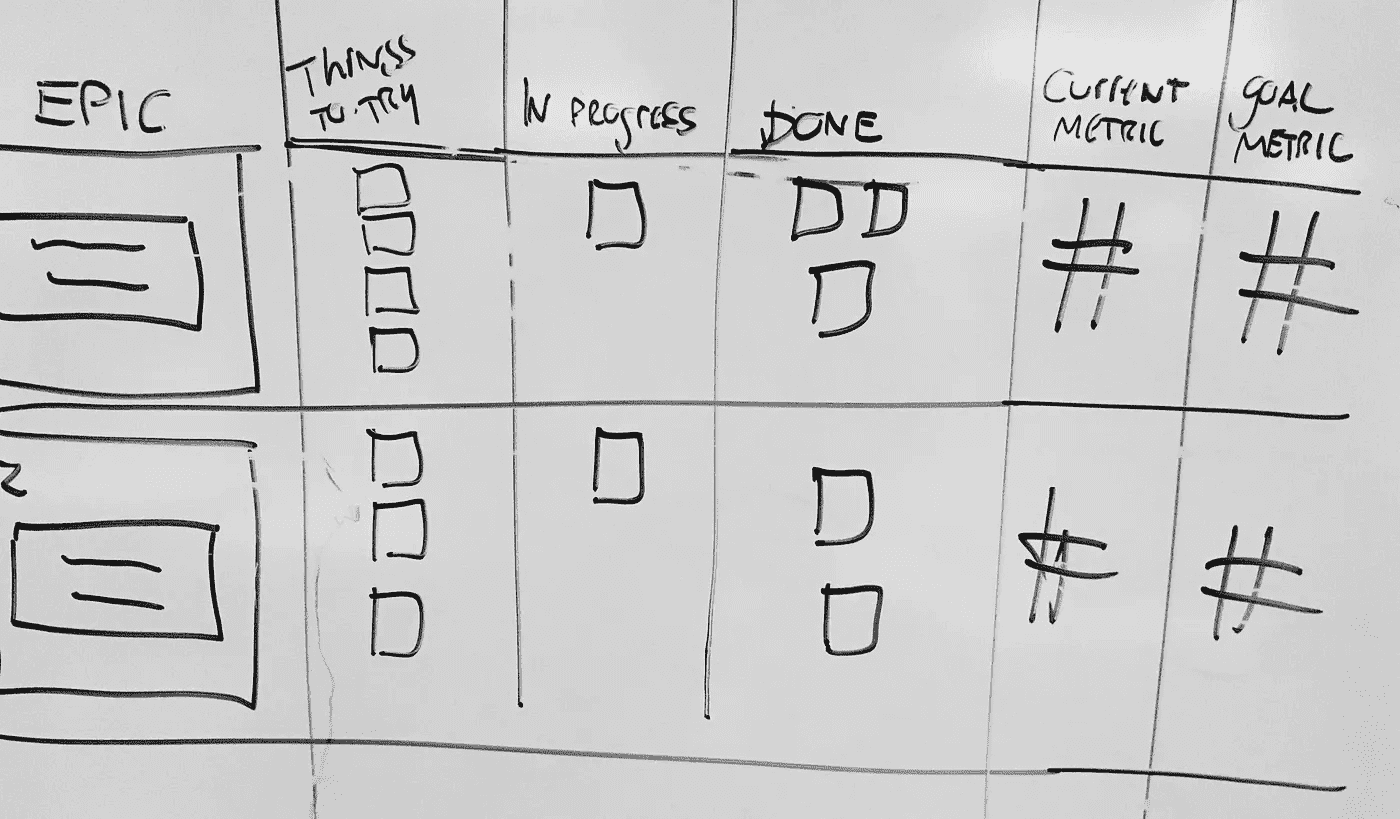 EPIC
THINGS
TO TRY
IN PROGRESS
DONE
CURRENT
METRIC
GOAL
METRIC
# #
2
# #